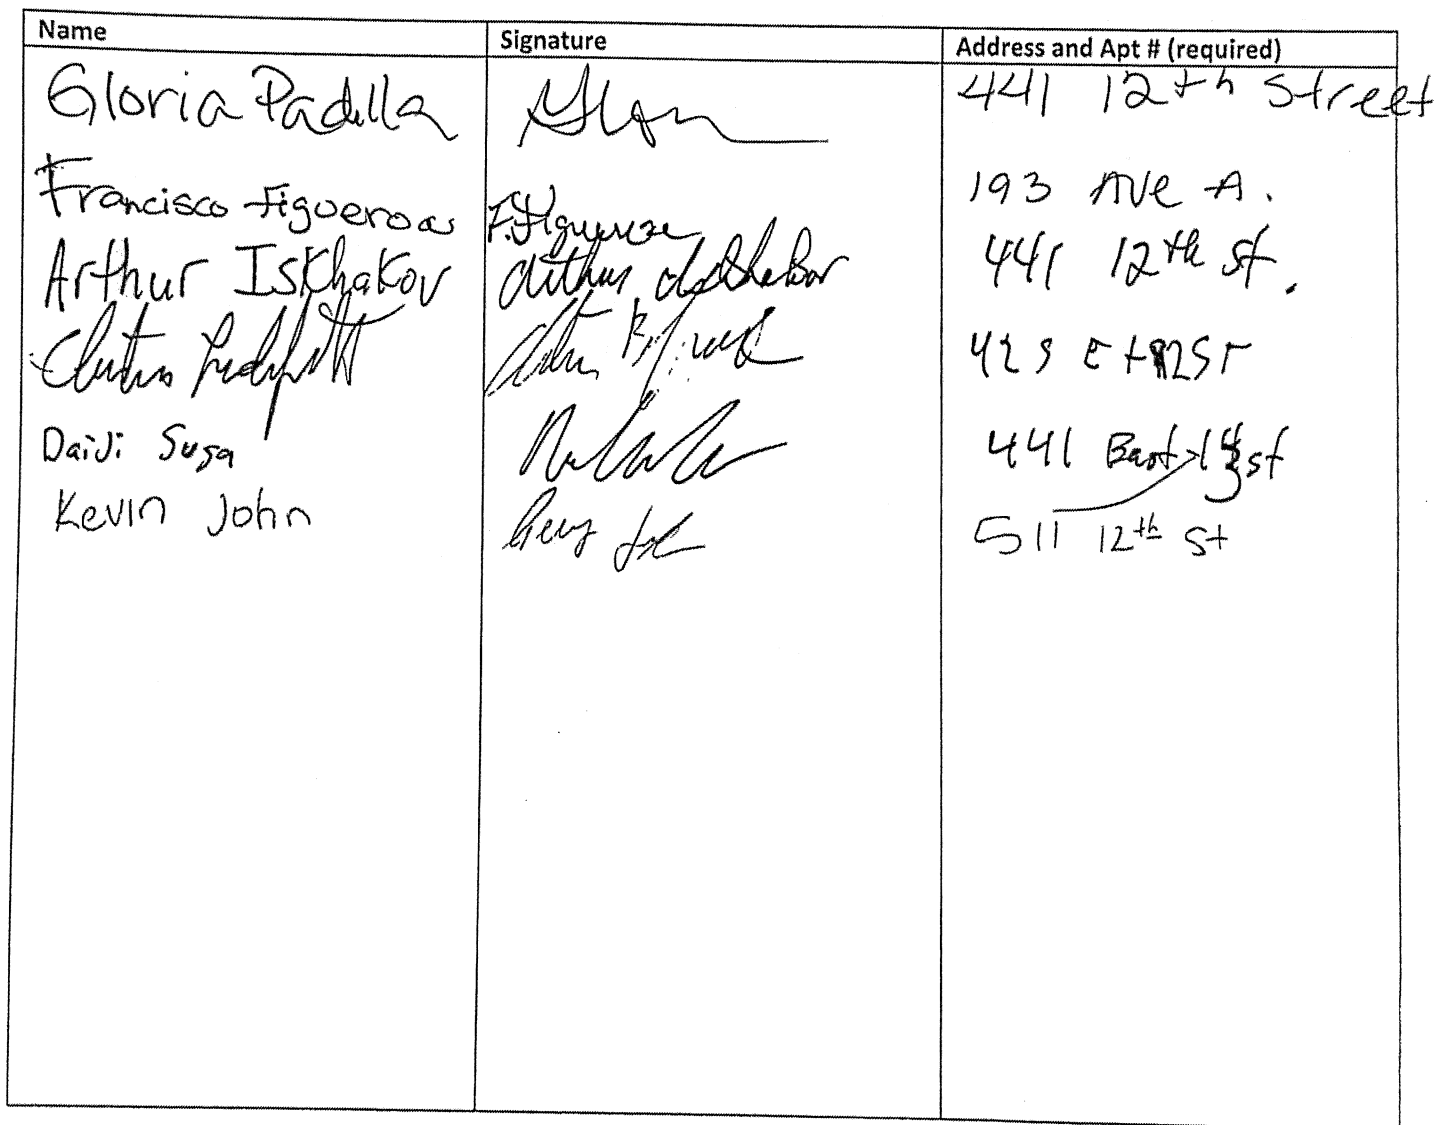 Name Signature Address and Apt # (required)
Gloria Padilla 441 12th Street
Francisco Figueroa F. Figueroa 193 AVE A.
Arthur Iskhakov Arthur Iskhakov 441 12th St.
E 12 ST
Daiji Suga 441 East st
Kevin John 511 12th St